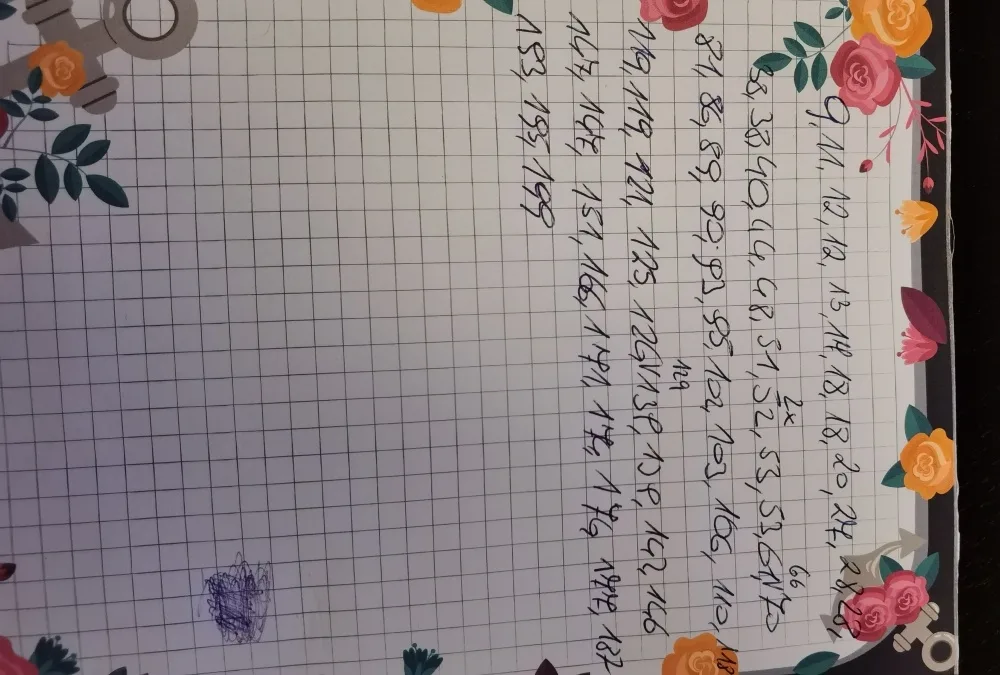 9, 11, 12, 12, 13, 14, 18, 18, 20, 27, 28, 28,
38, 38, 40, 44, 48, 51, 52, 2x 53, 53, 61, 66 70
81, 86, 89, 90, 93, 95, 102, 103, 106, 110, 118
119, 119, 121, 125, 126, 129 138, 138, 142, 146
147, 147, 151, 166, 171, 172, 176, 177, 187
193, 195, 199